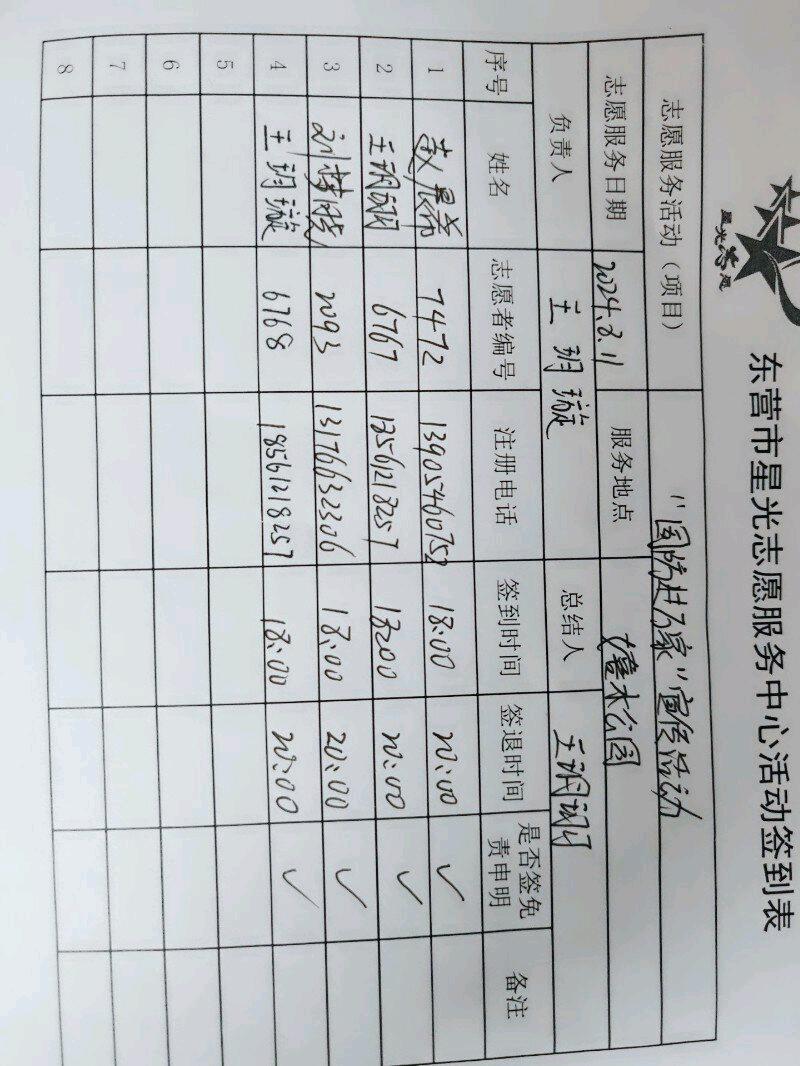 星光志愿
东营市星光志愿服务中心活动签到表
志愿服务活动（项目） "国防进万家"宣传活动
志愿服务日期 2024.8.11 服务地点 公园
负责人 王玥璇 总结人 王玥
序号 姓名 志愿者编号 注册电话 签到时间 签退时间 是否签免责申明 备注
1 7472 13905460752 18:00 20:00 ✓
2 王玥 6767 18561218257 18:00 20:00 ✓
3 刘梦晓 2093 13176632306 18:00 20:00 ✓
4 王玥璇 6768 18561218257 18:00 20:00 ✓
5
6
7
8